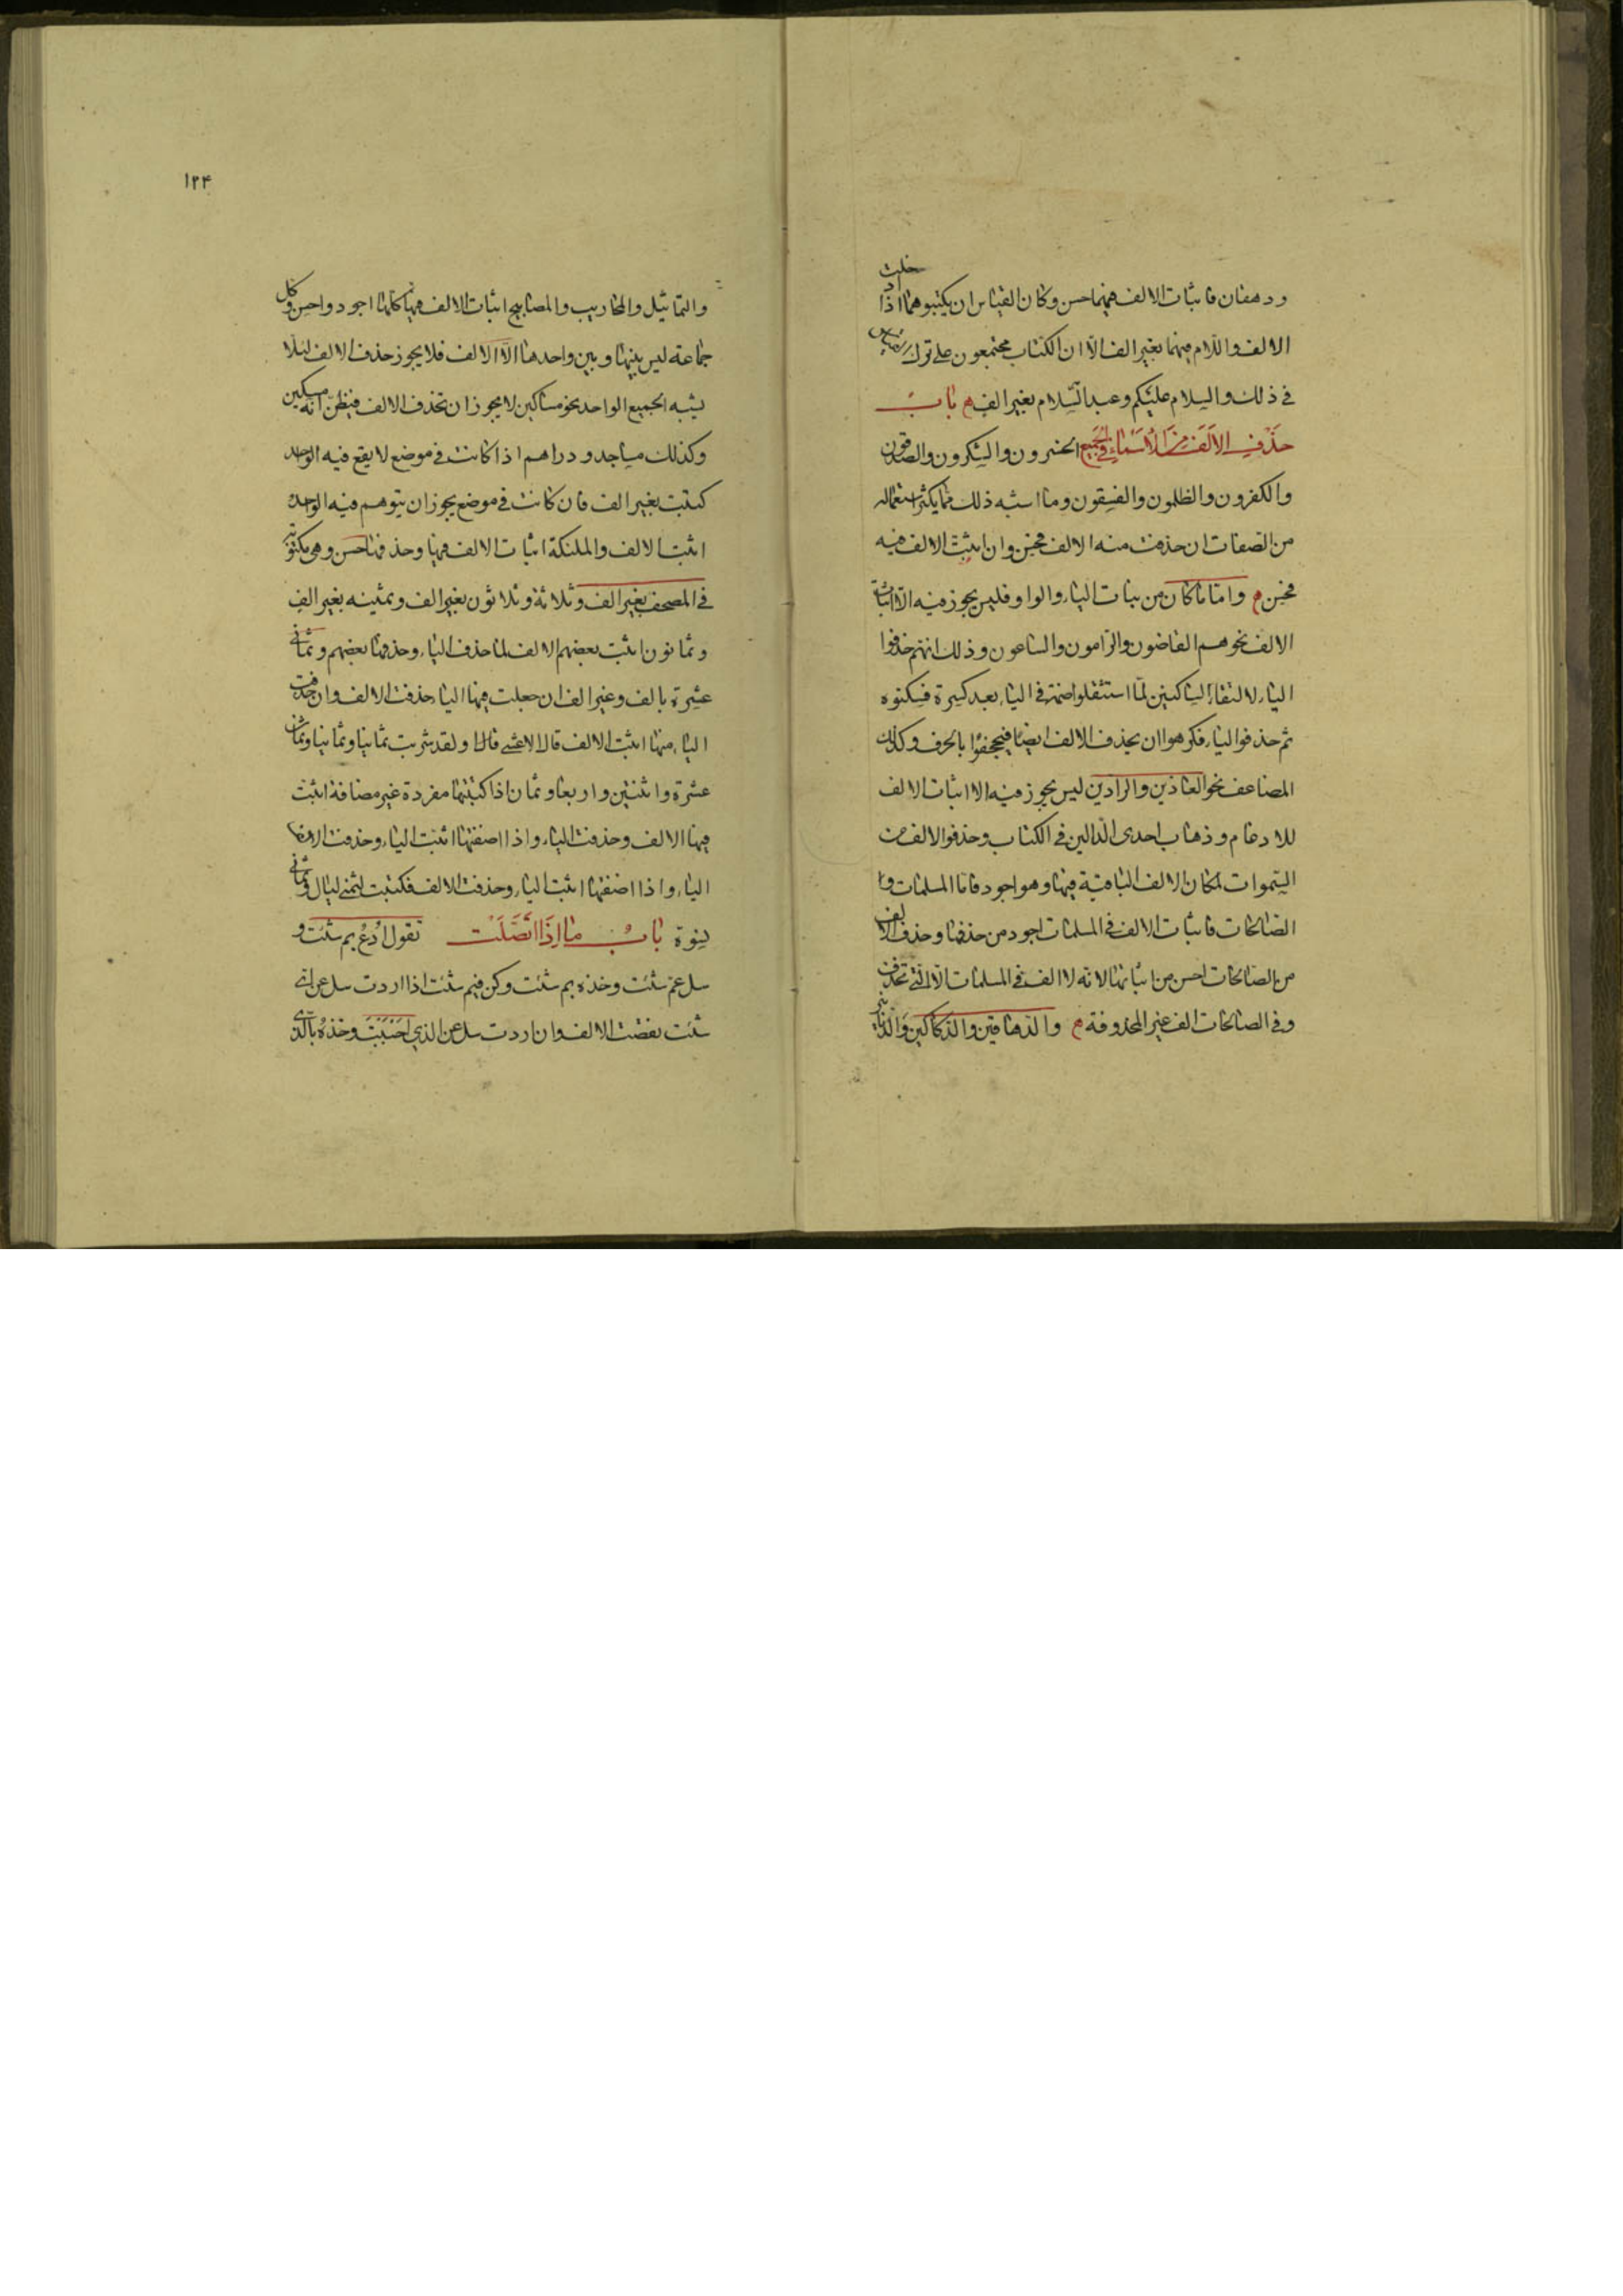 ودهقان فاثبات الالف فيهما حسن وكان القياس ان يكتبوهما اذا دخلت
الالف واللام فيهما بغير الف الّا ان الكتاب مجتمعون على ترك القياس
في ذلك والسلام عليكم وعبد السّلام بغير الف م باب
حذف الالف من الاسماء في الجميع الخسرون والشكرون والصدقون
والكفرون والظلمون والفسقون وما اشبه ذلك مما يكثر استعماله
من الصفات ان حذفت منه الالف فحسن وان اثبتّ الالف فيه
فحسن م وامّا ما كان من بنات الياء والواو فليس يجوز فيه الّا اثبات
الالف نحو هم القاضون والرامون والساعون وذلك انهم حذفوا
الياء لالتقاء الساكنين لمّا استثقلوا ضمة في الياء بعد كسرة فسكنوه
ثم حذفوا الياء فكرهوا ان يحذف الالف ايضا فيجحفوا بالحرف وكذلك
المضاعف نحو العاذين والرادين ليس يجوز فيه الا اثبات الالف
للادغام وذهاب احدى الدالين في الكتاب وحذفوا الالف من
السّموات لمكان الالف الباقية فيها وهو اجود فامّا المسلمات وا
الصالحات فاثبات الالف في المسلمات اجود من حذفها وحذف الالف
من الصالحات احسن من اثباتها لانه لا الف في المسلمات الّا التي تحذف
وفي الصالحات الف غير المحذوفة م والدهاقين والدكاكين والدنانير
١٢۴
والتماثيل والمحاريب والمصابيح اثبات الالف فيها كلها اجود واحسن وكل
جماعة ليس بينها وبين واحدها الّا الالف فلا يجوز حذف الالف لئلا
يشبه الجميع الواحد نحو مساكين لا يجوز ان تحذف الالف فيظنّ انّه مسكين
وكذلك مساجد ودراهم اذا كانت في موضع لا يقع فيه الواحد
كتبت بغير الف فان كانت في موضع يجوز ان يتوهم فيه الواحد
اثبت الالف والملئكة اثبات الالف فيها وحذفها حسن وهي مكتوبة
في المصحف بغير الف وثلاثة وثلاثون بغير الف وثمنيه بغير الف
وثمانون اثبت بعضهم الالف لما حذف الياء وحذفها بعضهم وثماني
عشرة بالف وغير الف ان جعلت فيها الياء حذفت الالف وان حذفت
الياء منها اثبت الالف قال الاعشى قال ولقد شربت ثمانيا وثمانيا وثمان
عشرة واثنتين واربعا وثمان اذا كتبتها مفردة غير مضافة اثبت
فيها الالف وحذفت الياء واذا اضفتها اثبت الياء وحذفت الالف
الياء واذا اضفتها اثبت الياء وحذفت الالف فكتبت لثمني ليال وثماني
نسوة باب ما اذا اتصلت تقول ادع بم شئت و
سل عم شئت وخذه بم شئت وكن فيم شئت اذا اردت سل عن اي
شئت نقصت الالف وان اردت سل عن الذي احببت وخذه بالذي